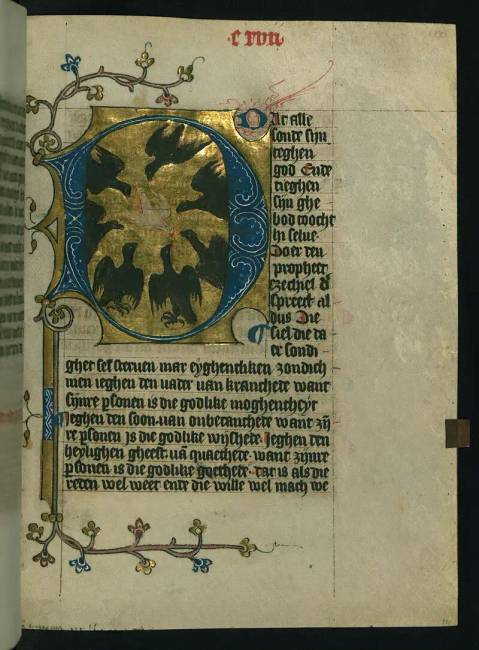 c xvii
Ar alle
sonde sijn
ieghen
god Ende
tieghen
sijn ghe
bod wocht
hi selue.
Doer den
propheet
ezechiel
spreect al
dus Die
siel die da
er sondi
ghet sel steruen mar eyghentliken zondich
men ieghen den uader uan krancheде want
sijnre psonen is die godlike moghentheyt
Ieghen den soon uan onbecanthede want zij
re psonen is die godlike wijshete. Ieghen den
heylighen gheest uā quaethede. want zijnre
psonen is die godlike goethede. dat is als die
reden wel weet ende die wille wel mach we